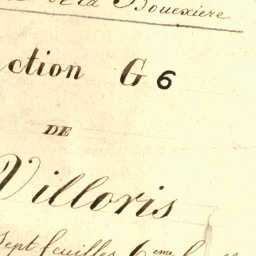 de la Bouexière
ction G 6
DE
Villoris
Sept feuilles 6eme